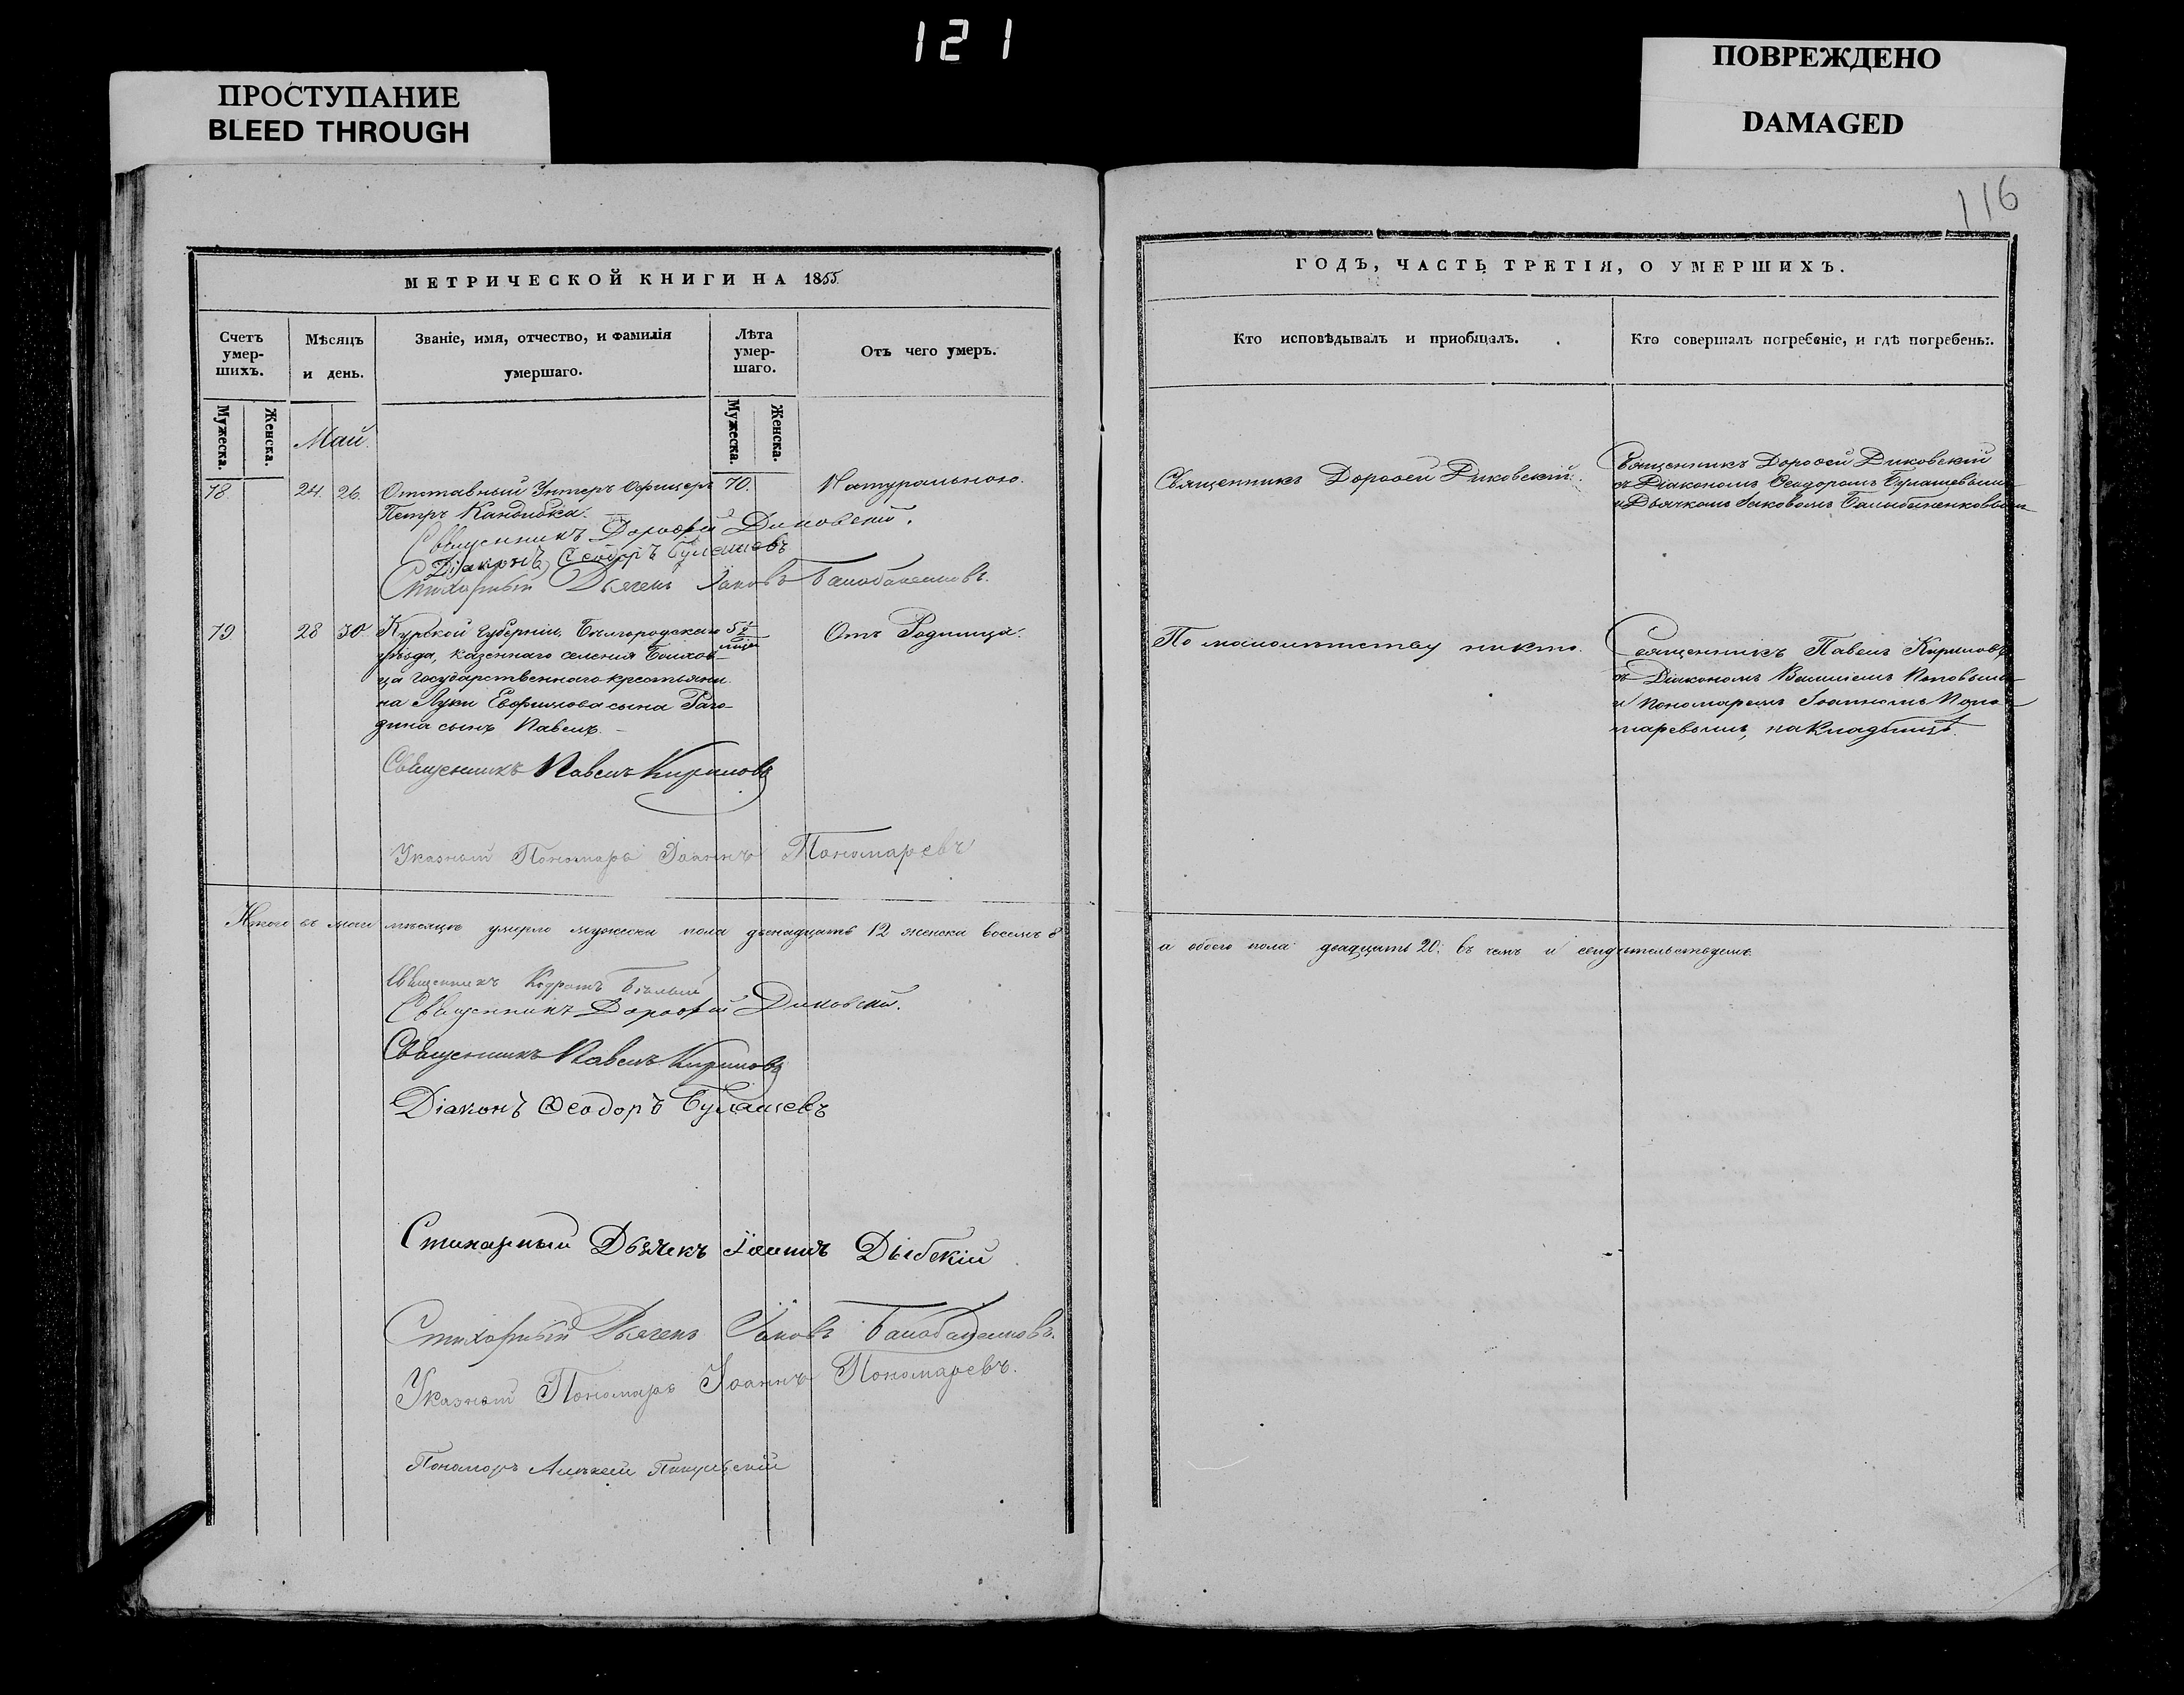 121
ПРОСТУПАНИЕ
BLEED THROUGH
ПОВРЕЖДЕНО
DAMAGED
116
МЕТРИЧЕСКОЙ КНИГИ НА 1855
Счетъ умер-шихъ.
Мѣсяцъ и день.
Званіе, имя, отчество, и фамилія умершаго.
Лѣта умер-шаго.
Отъ чего умеръ.
Мужеска.
Женска.
Мужеска.
Женска.
Май.
78. 24. 26. Отставный Унтеръ Офицеръ 70. Натуральною.
Петръ Кандыбка.
Священникъ Дороѳей Диковскій.
Діаконъ Ѳеодоръ Булашевъ
Стихарный Дьячекъ Іаковъ
79 28 30 Курской Губерніи, Бѣлгородскаго 5 Отъ Родимца.
уѣзда, казеннаго селенія Болхов-
ца Государственнаго крестьяни-
на Луки Евфимова сына Раго-
дина сынъ Павелъ.
Священникъ Павелъ Кириловъ
Указный Пономарь Іоаннъ Пономаревъ
Итого въ маѣ мѣсяцѣ умерло мужеска пола двенадцать 12 женска восемь 8
Священникъ Бѣлый
Священникъ Дороѳей Диковскій.
Священникъ Павелъ Кириловъ
Діаконъ Ѳеодоръ Булашевъ
Стихарный Дьячекъ Іоаннъ Дыбскій
Стихарный Дьячекъ Іаковъ
Указный Пономарь Іоаннъ Пономаревъ.
Пономарь Алексѣй
ГОДЪ, ЧАСТЬ ТРЕТІЯ, О УМЕРШИХЪ.
Кто исповѣдывалъ и пріобщалъ.
Кто совершалъ погребеніе, и гдѣ погребены.
Священникъ Дороѳей Диковскій.
Священникъ Дороѳей Диковскій
съ Діакономъ Ѳеодоромъ Булашевымъ
и Дьячкомъ Іаковомъ
По малолѣтству никто.
Священникъ Павелъ Кириловъ
съ Діакономъ Поповымъ
и Пономаремъ Іоанномъ Поно-
маревымъ, на кладбищѣ.
а обоего пола двадцать 20: въ чемъ и свидѣтельствуемъ.